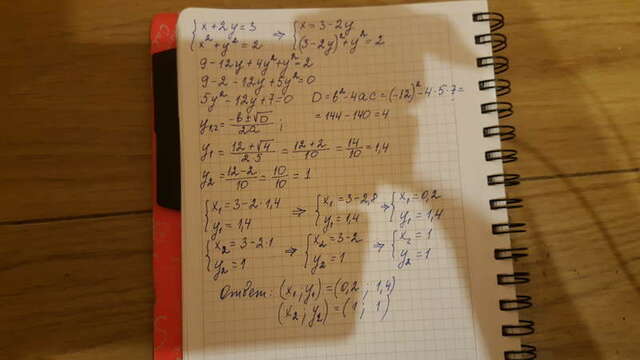 {x+2y=3 ⇒ {x=3-2y
{x²+y²=2 {(3-2y)²+y²=2
9-12y+4y²+y²=2
9-2-12y+5y²=0
5y²-12y+7=0 D=b²-4ac=(-12)²-4·5·7=
y₁,₂=-b±√D/2a; =144-140=4
y₁=12+√4/2·5=12+2/10=14/10=1,4
y₂=12-2/10=10/10=1
{x₁=3-2·1,4 ⇒ {x₁=3-2,8 ⇒ {x₁=0,2
{y₁=1,4 {y₁=1,4 {y₁=1,4
{x₂=3-2·1 ⇒ {x₂=3-2 ⇒ {x₂=1
{y₂=1 {y₂=1 {y₂=1
Ответ: (x₁;y₁)=(0,2;1,4)
(x₂;y₂)=(1;1)